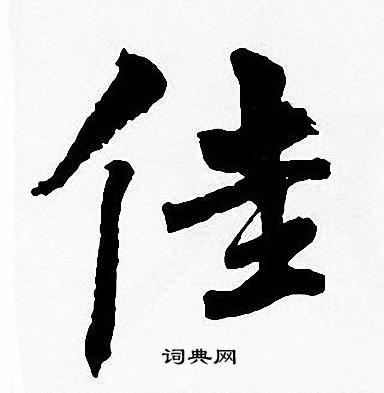 佳
词典网